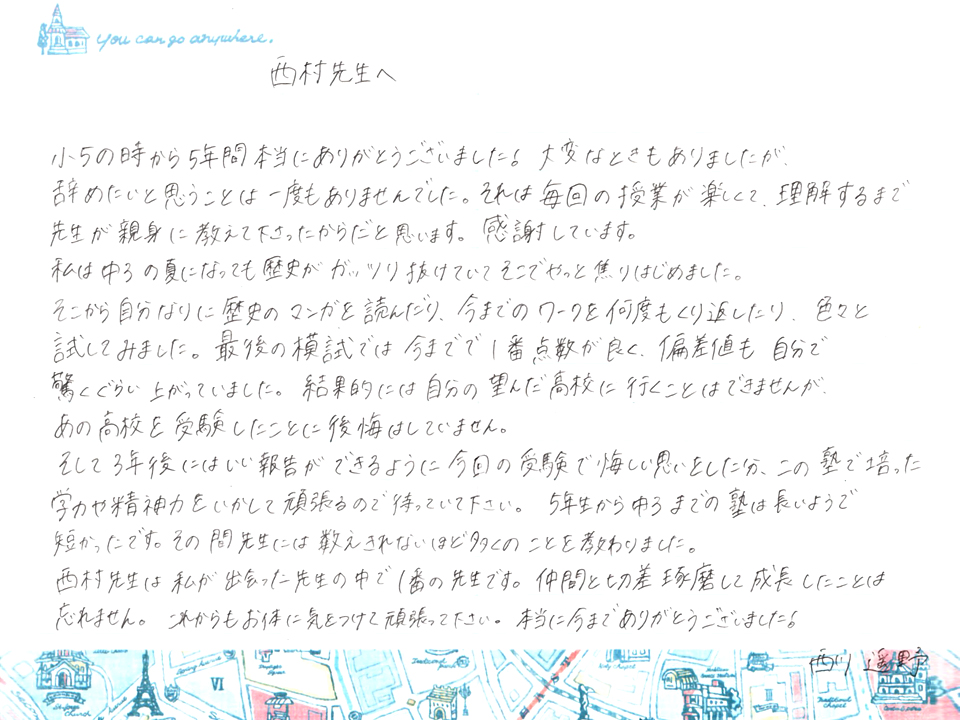 you can go anywhere.
西村先生へ
小5の時から5年間本当にありがとうございました! 大変なときもありましたが、
辞めたいと思うことは一度もありませんでした。それは毎回の授業が楽しくて、理解するまで
先生が親身に教えて下さったからだと思います。感謝しています。
私は中3の夏になっても歴史がガッツリ抜けていてそこでやっと焦りはじめました。
そこから自分なりに歴史のマンガを読んだり、今までのワークを何度もくり返したり、色々と
試してみました。最後の模試では今までで1番点数が良く、偏差値も自分で
驚くぐらい上がっていました。結果的には自分の望んだ高校に行くことはできませんが、
あの高校を受験したことに後悔はしていません。
そして3年後にはいい報告ができるように今回の受験で悔しい思いをした分、この塾で培った
学力や精神力をいかして頑張るので待っていて下さい。5年生から中3までの塾は長いようで
短かったです。その間先生には数えきれないほど多くのことを教わりました。
西村先生は私が出会った先生の中で1番の先生です。仲間と切差琢磨して成長したことは
忘れません。これからもお体に気をつけて頑張って下さい。本当に今までありがとうございました!
西川 遥
VI